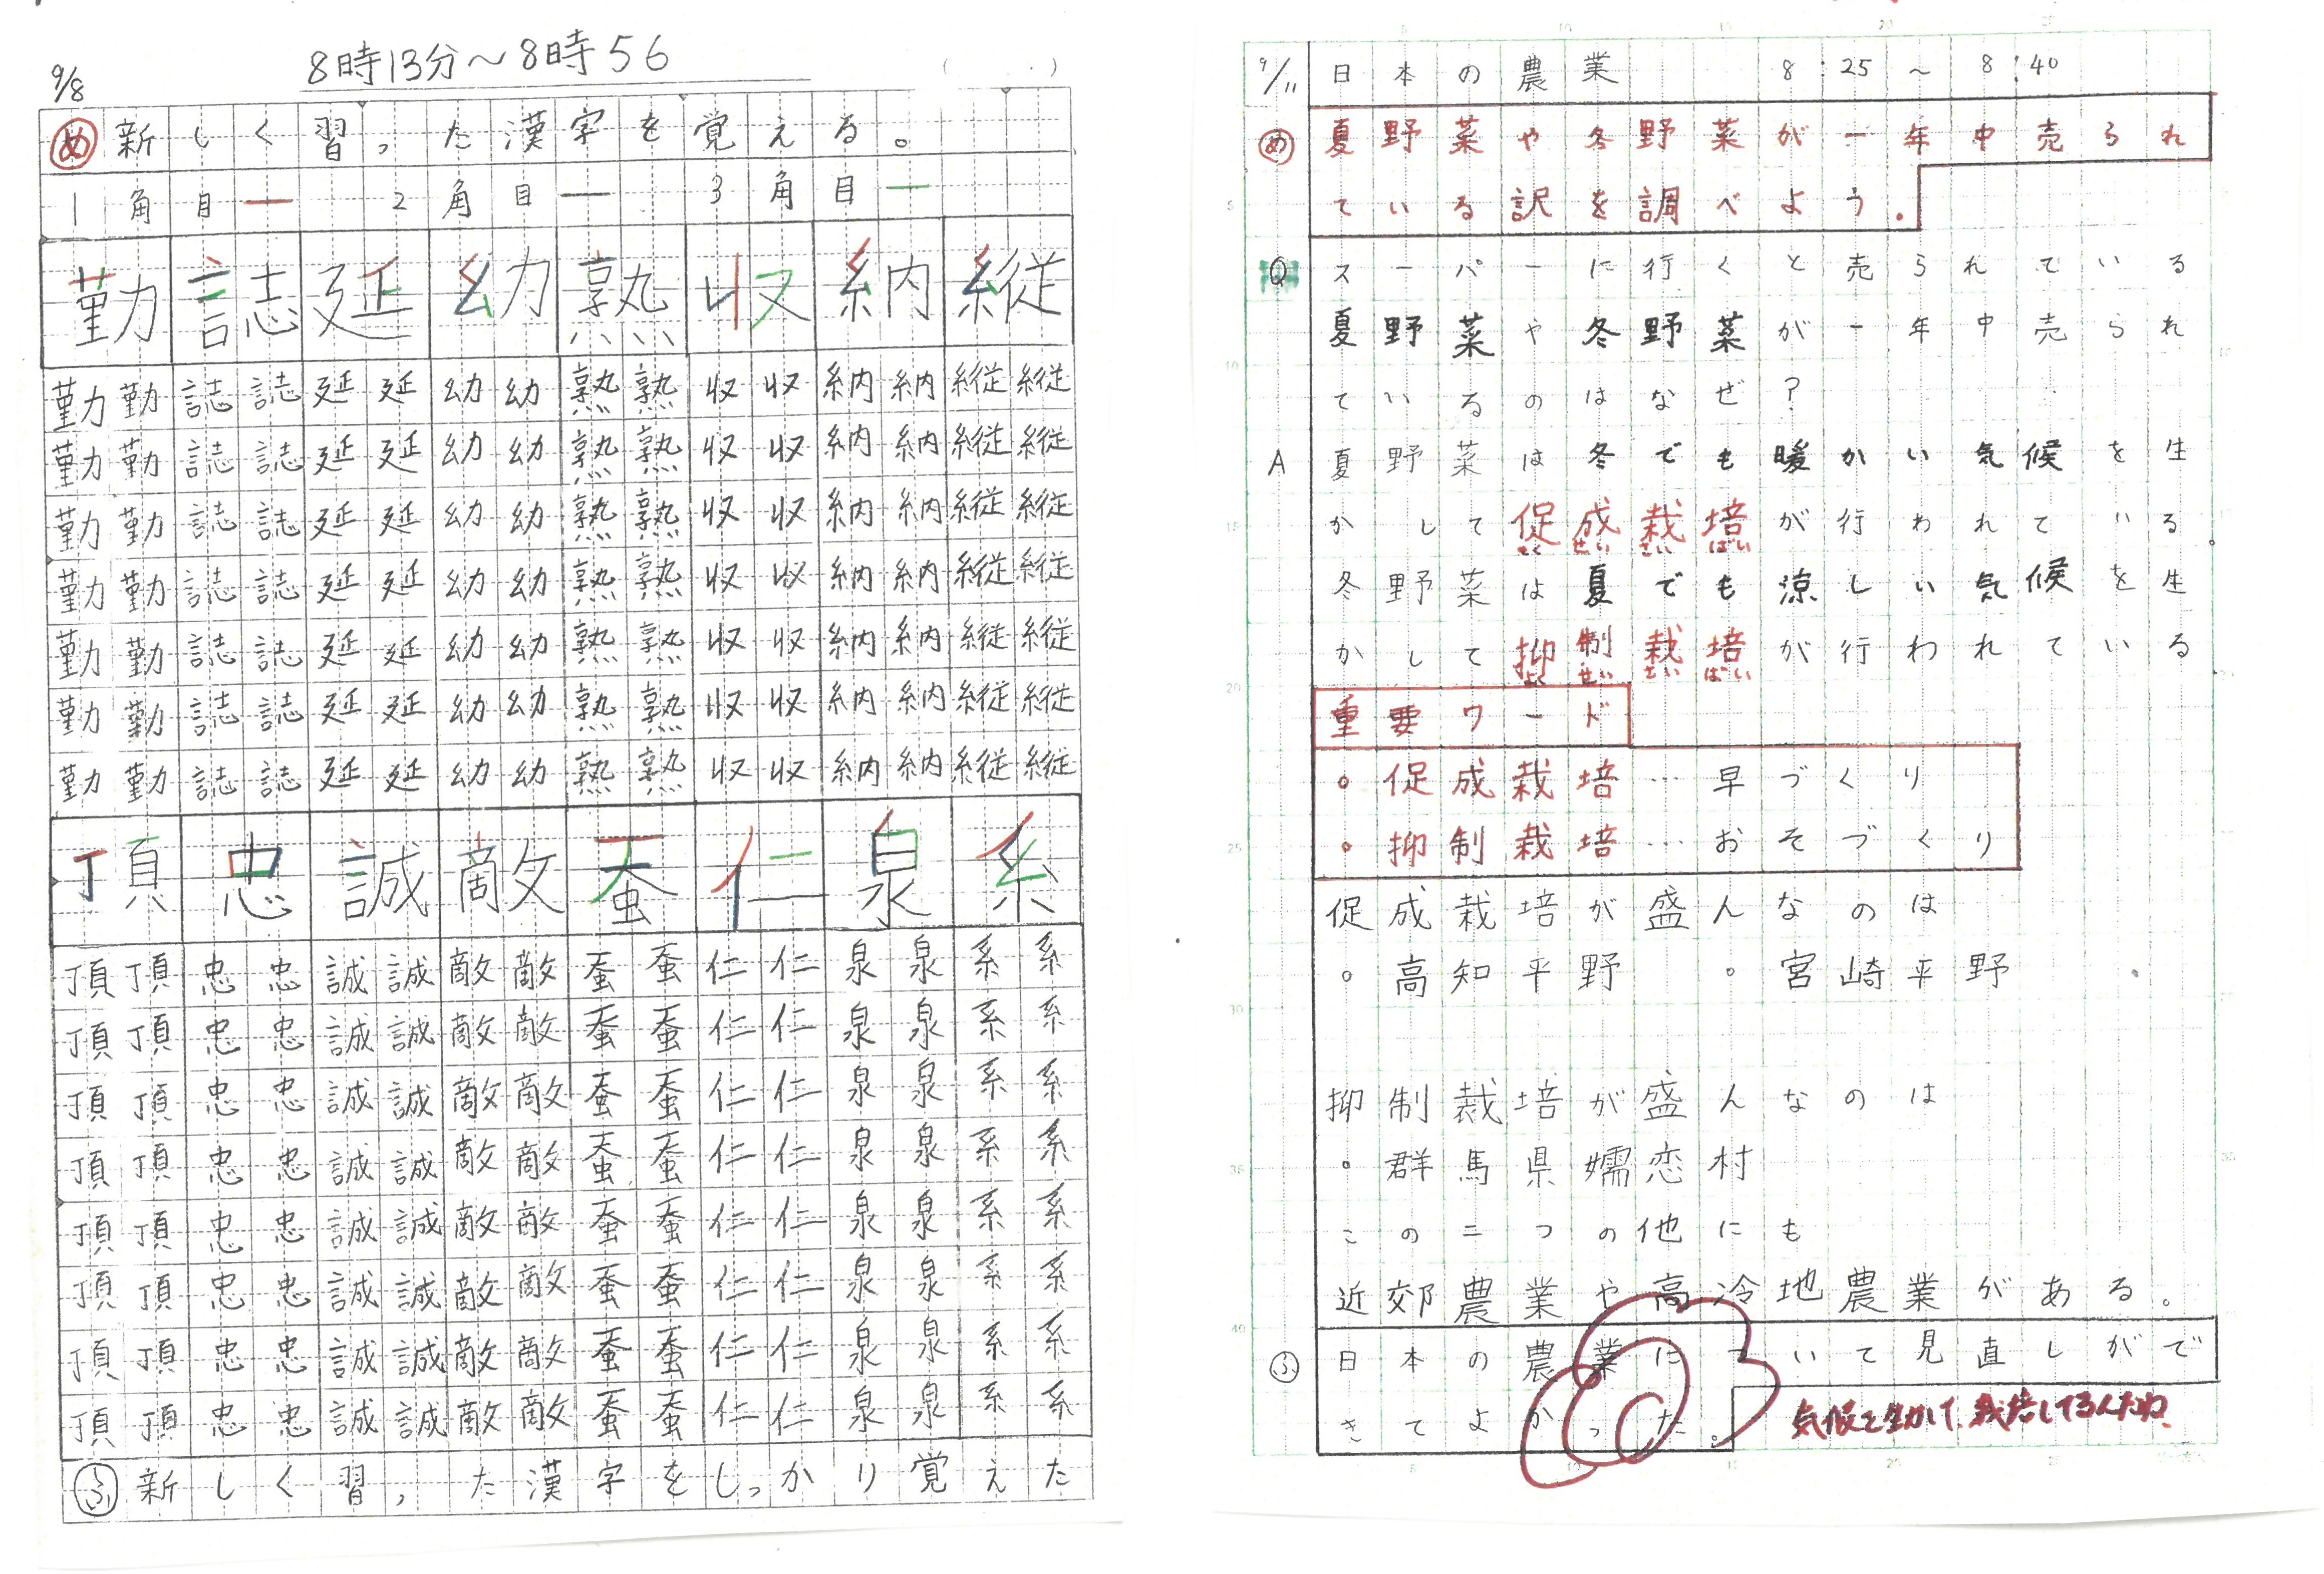 9/8
8時13分～8時56
( . )
め 新しく習った漢字を覚える。
1角目一 2角目一 3角目一
勤誌延幼熟収納縦
勤勤誌誌延延幼幼熟熟収収納納縦縦
勤勤誌誌延延幼幼熟熟収収納納縦縦
勤勤誌誌延延幼幼熟熟収収納納縦縦
勤勤誌誌延延幼幼熟熟収収納納縦縦
勤勤誌誌延延幼幼熟熟収収納納縦縦
勤勤誌誌延延幼幼熟熟収収納納縦縦
勤勤誌誌延延幼幼熟熟収収納納縦縦
頂忠誠敵蚕仁泉系
頂頂忠忠誠誠敵敵蚕蚕仁仁泉泉系系
頂頂忠忠誠誠敵敵蚕蚕仁仁泉泉系系
頂頂忠忠誠誠敵敵蚕蚕仁仁泉泉系系
頂頂忠忠誠誠敵敵蚕蚕仁仁泉泉系系
頂頂忠忠誠誠敵敵蚕蚕仁仁泉泉系系
頂頂忠忠誠誠敵敵蚕蚕仁仁泉泉系系
頂頂忠忠誠誠敵敵蚕蚕仁仁泉泉系系
頂頂忠忠誠誠敵敵蚕蚕仁仁泉泉系系
ふ 新しく習った漢字をしっかり覚えた
9/11 日本の農業 8:25～8:40
め 夏野菜や冬野菜が一年中売られ
ている訳を調べよう。
Q スーパーに行くと売られている
夏野菜や冬野菜が一年中売られ
ているのはなぜ?
A 夏野菜は冬でも暖かい気候を生
かして促成栽培が行われている。
そくせいさいばい
冬野菜は夏でも涼しい気候を生
かして抑制栽培が行われている
よくせいさいばい
重要ワード
。促成栽培…早づくり
。抑制栽培…おそづくり
促成栽培が盛んなのは
。高知平野 。宮崎平野
抑制栽培が盛んなのは
。群馬県嬬恋村
この二つの他にも
近郊農業や高冷地農業がある。
ふ 日本の農業について見直しがで
きてよかった。
気候を生かして、栽培してるんだね。